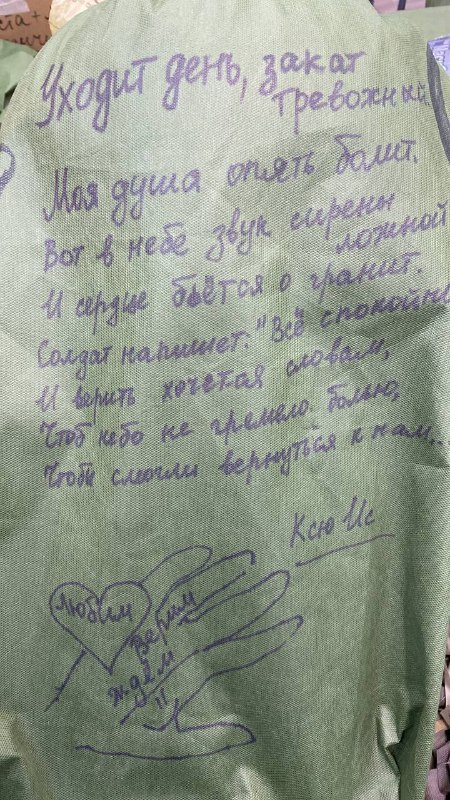 Уходит день, закат
тревожный.
Моя душа опять болит.
Вот в небе звук сирены
ложной
И сердце бьётся о гранит.
Солдат напишет: "Всё спокойно
И верить хочется словам,
Чтоб небо не гремело болью,
Чтобы смогли вернуться к нам...
Ксю Ис
Любим
Верим
Ждём
!!